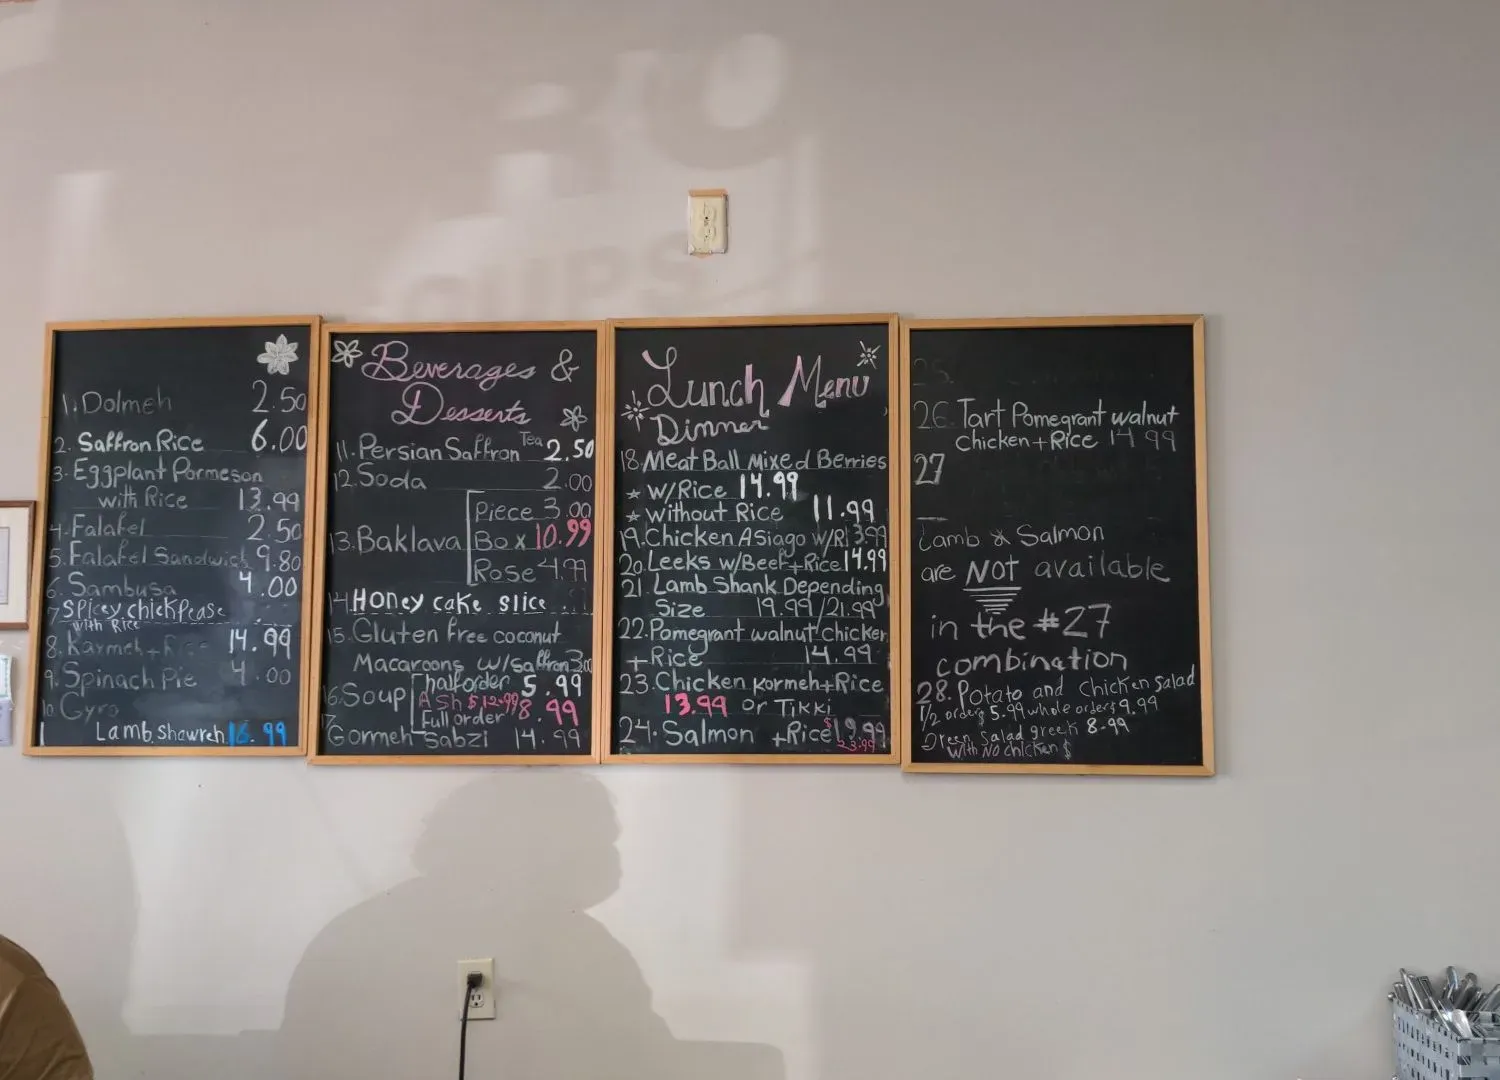 1. Dolmeh 2.50
2. Saffron Rice 6.00
3. Eggplant Parmeson
with Rice 13.99
4. Falafel 2.50
5. Falafel Sandwich 9.80
6. Sambusa 4.00
7 Spicey chickpease
with Rice
8. Karmeh + Rice 14.99
9. Spinach Pie 4.00
10. Gyro
Lamb, shawreh 16.99
Beverages &
Desserts
11. Persian Saffron Tea 2.50
12. Soda 2.00
13. Baklava
Piece 3.00
Box 10.99
Rose 4.99
14. Honey cake slice
15. Gluten free coconut
Macaroons w/saffron 3.00
16. Soup
half order 5.99
ASh $12.99
Full order 8.99
17 Gormeh Sabzi 14.99
Lunch Menu
Dinner
18. Meat Ball Mixed Berries
* w/Rice 14.99
* without Rice 11.99
19. Chicken Asiago w/Ri 3.99
20. Leeks w/Beef + Rice 14.99
21. Lamb Shank Depending
Size 19.99/21.99
22. Pomegrant walnut Chicken
+ Rice 14.99
23. Chicken Kormeh + Rice
13.99 Or Tikki
24. Salmon + Rice $19.99
23.99
25.
26. Tart Pomegrant walnut
Chicken + Rice 14 99
27
Lamb & Salmon
are NOT available
in the #27
combination
28. Potato and Chicken Salad
1/2 order $ 5.99 whole order $ 9.99
Green Salad greek 8.99
With No chicken $